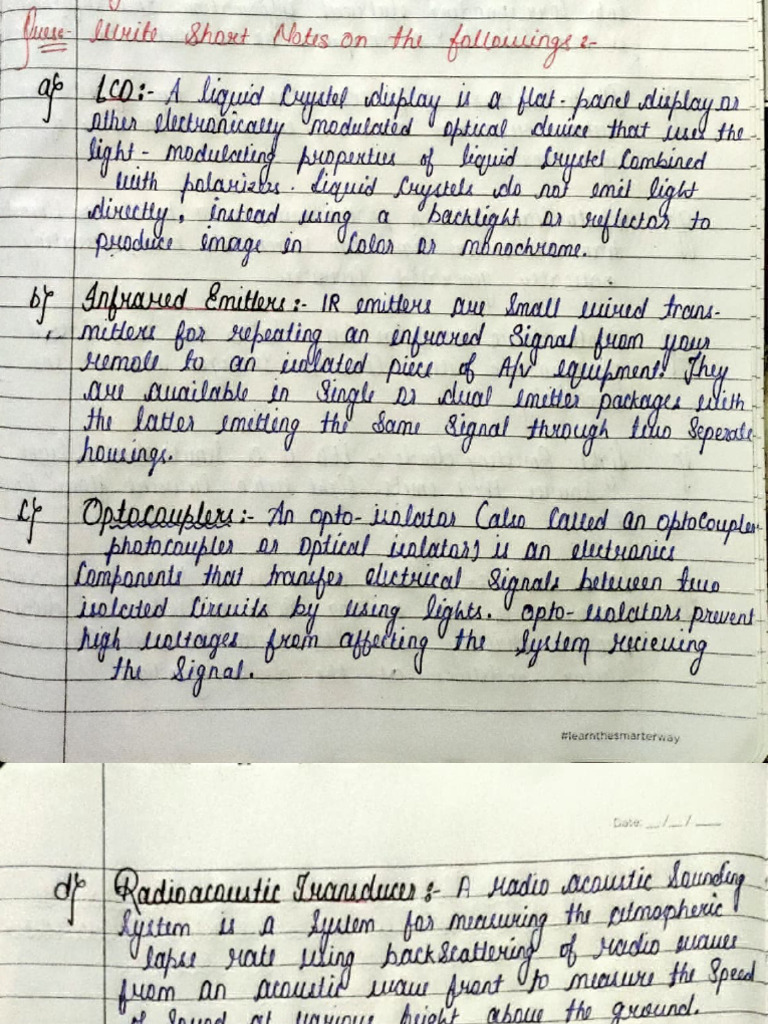 Ques- Write Short Notes on the followings:-
a) LCD:- A liquid Crystel display is a flat-panel display or
other electronically modulated optical device that uses the
light-modulating properties of liquid Crystel Combined
with polarizers. Liquid Crystels do not emit light
directly, instead using a backlight or reflector to
produce image in Color or monochrome.
b) Infrared Emitters:- IR emitters are Small wired trans-
mitters for repeating an infrared Signal from your
remote to an isolated piece of A/V equipment. They
are available in Single or dual emitter packages with
the latter emitting the Same Signal through two Seperate
housings.
c) Optocouplers:- An opto-isolator (also Called an optocoupler
photocoupler or Optical isolator) is an electronics
Components that transfer electrical Signals between two
isolated Circuits by using lights. Opto-isolators prevent
high voltages from affecting the System recieving
the Signal.
#learnthesmarterway
Date: __/__/__
d) Radioacoustic Transducer:- A radio acoustic Sounding
System is a System for measuring the atmospheric
lapse rate using backscattering of radio waves
from an acoustic wave front to measure the Speed
of Sound at various height above the ground.